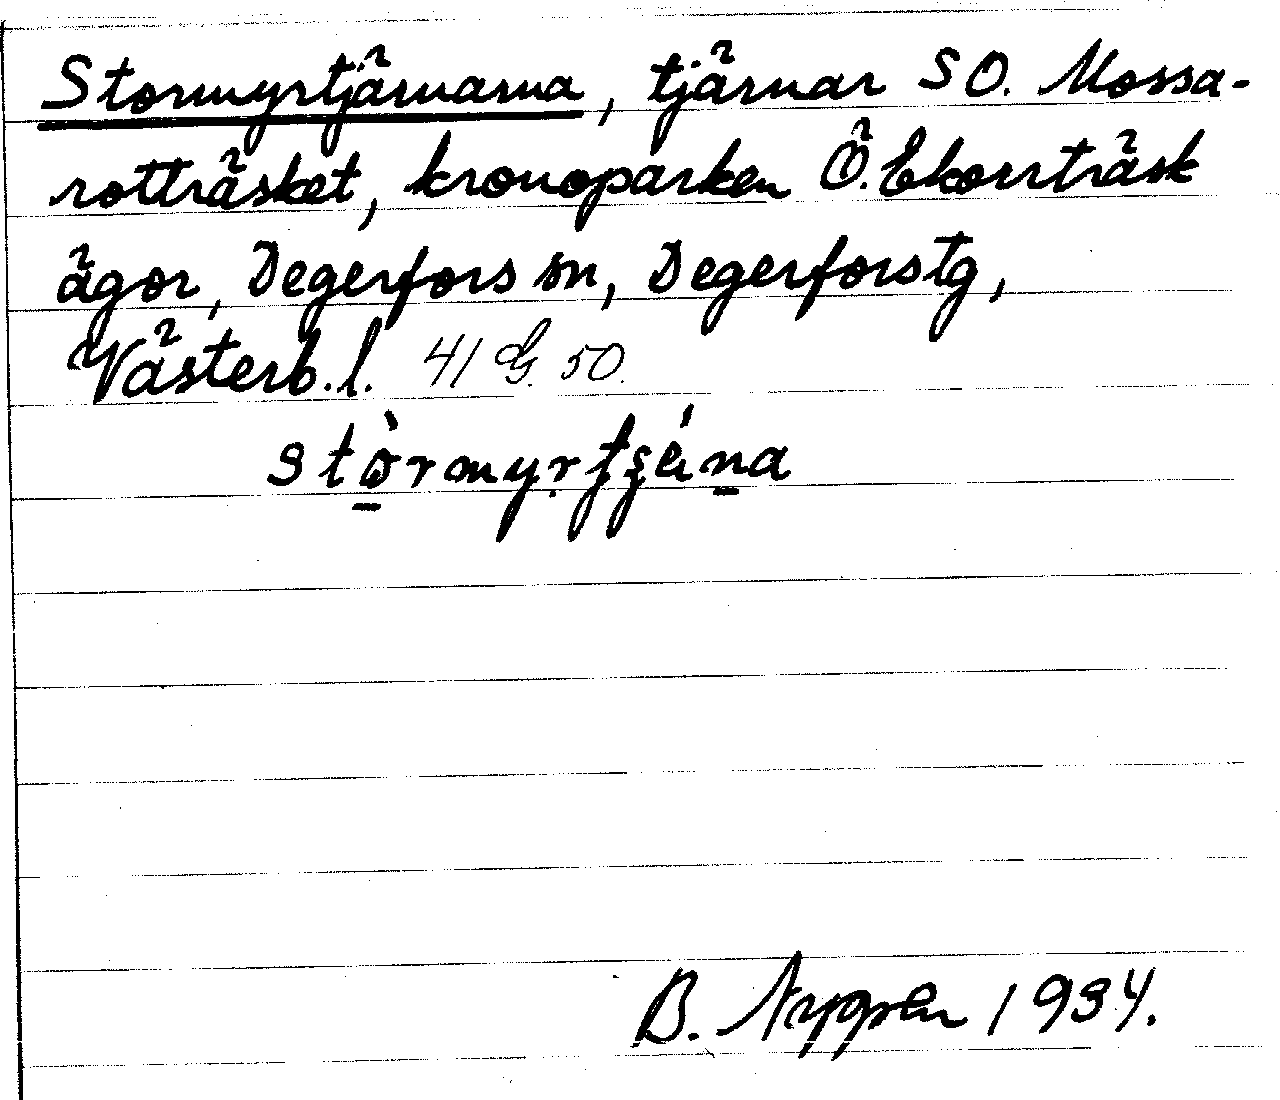 Stormyrtjärnarna, tjärnar SO. Mossa-
rotträsket, kronoparken Ö. Ekorrträsk
ägor, Degerfors sn, Degerforstg,
Västerb. l. 41 G. 50.
B. Nygren 1934.